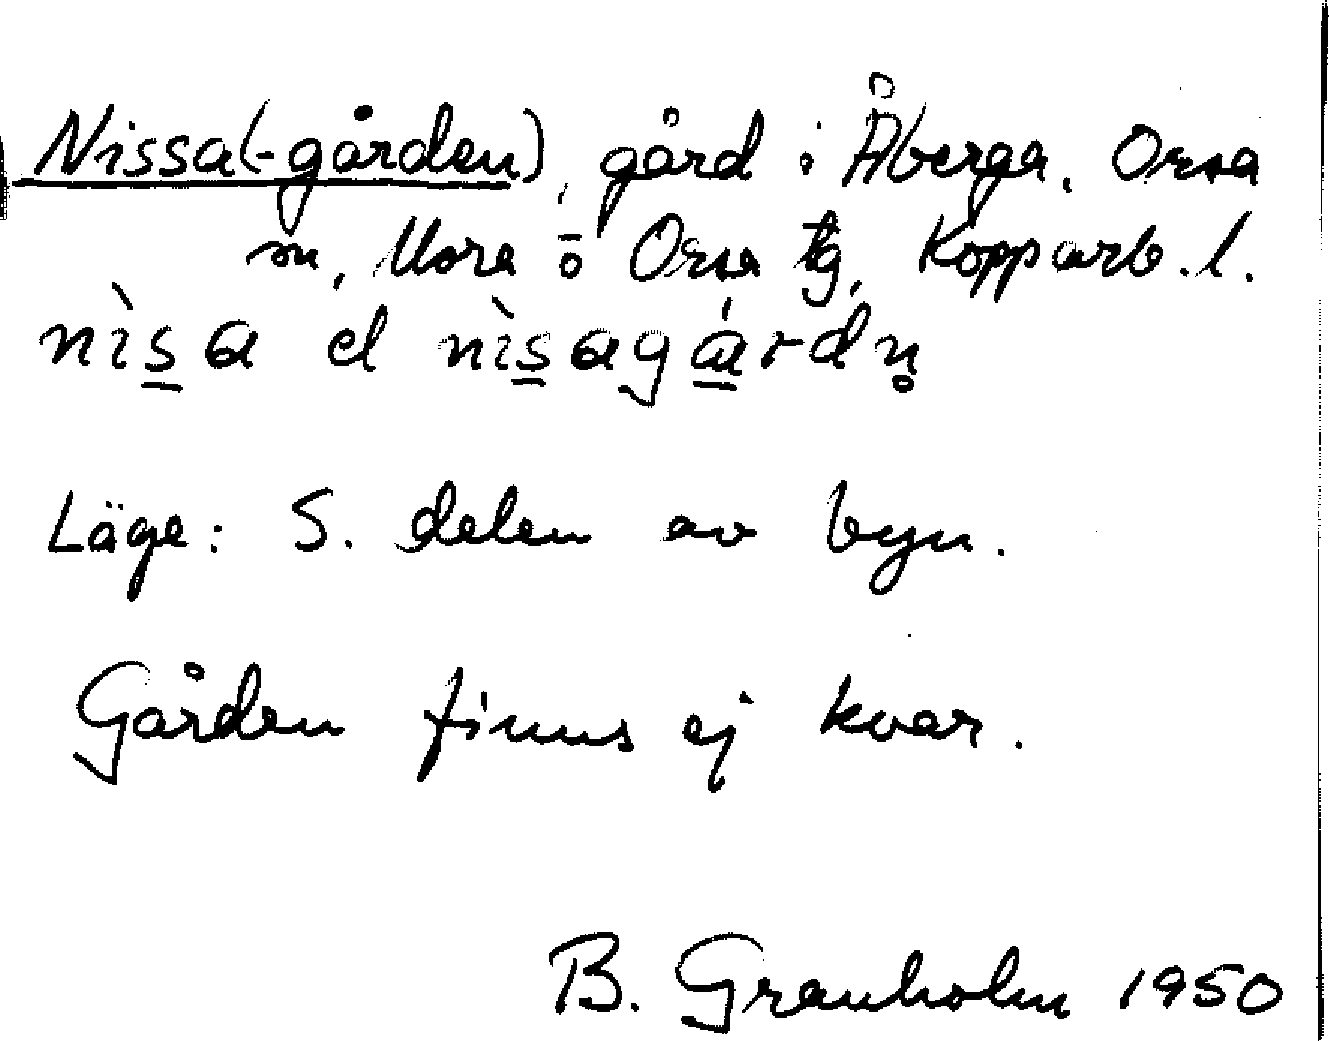 Nissa(-gården), gård i Åberga, Orsa
sn, Mora o Orsa tg, Kopparb. l.
nìs̲a el nìs̲agá̲rdn̥
Läge: S. delen av byn.
Gården finns ej kvar.
B. Granholm 1950